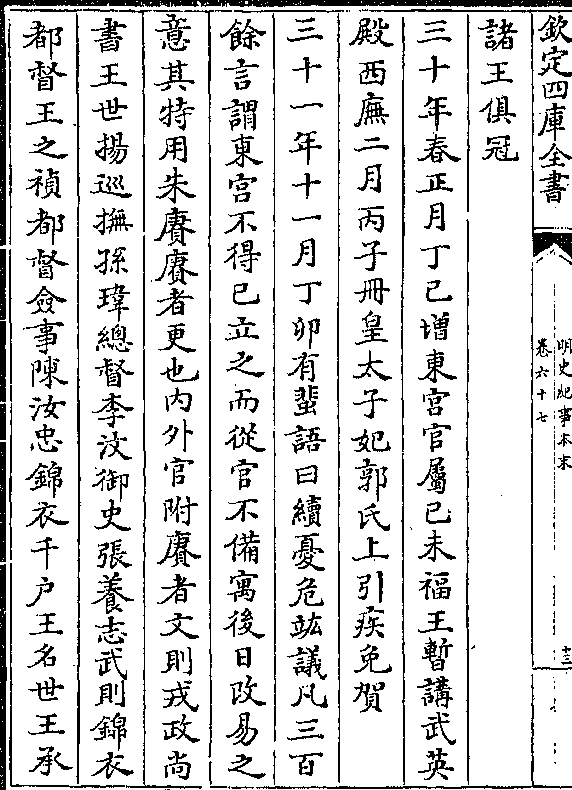 欽定四庫全書
明史紀事本末
卷六十七
十三
諸王俱冠
三十年春正月丁巳增東宫官屬己未福王暫講武英
殿西廡二月丙子冊皇太子妃郭氏上引疾免賀
三十一年十一月丁卯有蜚語曰續憂危竑議凡三百
餘言謂東宮不得已立之而從官不備寓後日改易之
意其特用朱賡賡者更也内外官附賡者文則戎政尚
書王世揚巡撫孫瑋總督李汶御史張養志武則錦衣
都督王之禎都督僉事陳汝忠錦衣千户王名世王承